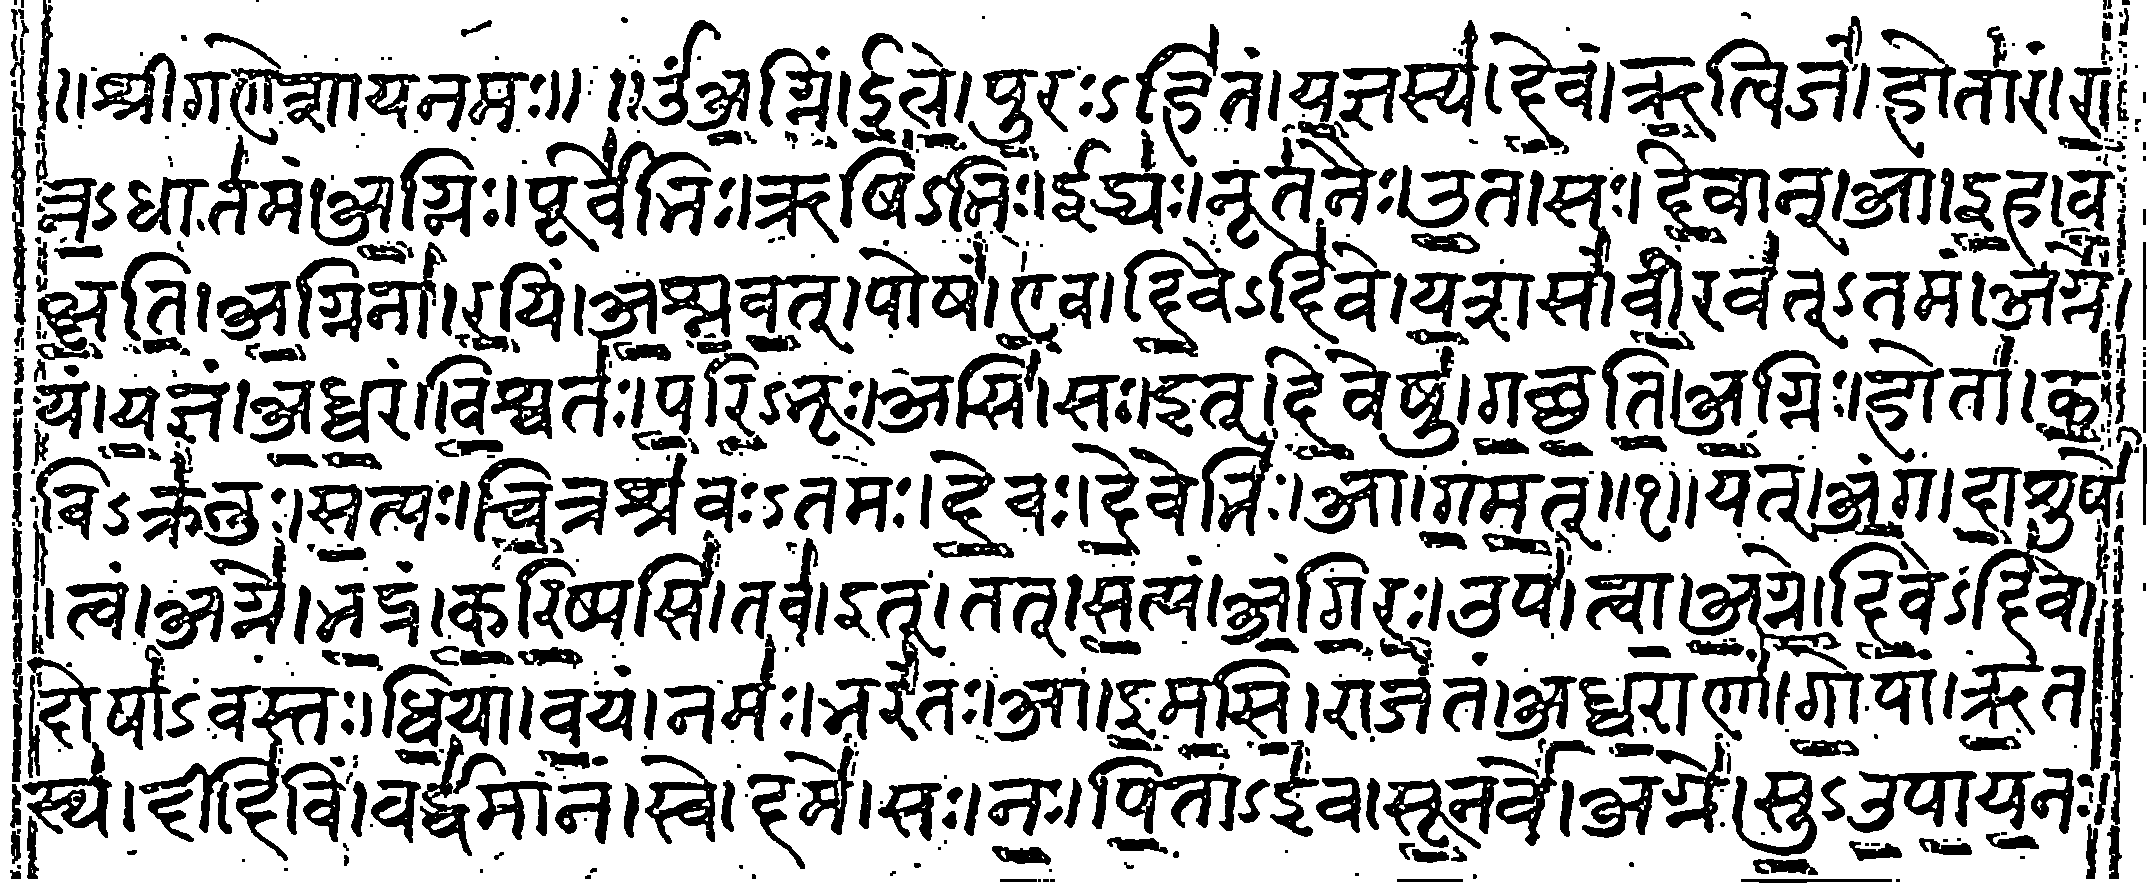 ॥श्रीगणेशायनमः॥ ॥ॐअग्निं।ईळे।पुरःऽहितं।यज्ञस्य।देवं।ऋत्विजं।होतारं।र
त्नऽधातमं।अग्निः।पूर्वेभिः।ऋषिऽभिः।ईड्यः।नूतनैः।उत।सः।देवान्।आ।इह।व
क्षति।अग्निना।रयिं।अश्नवत्।पोषं।एव।दिवेऽदिवे।यशसं।वीरवत्ऽतमं।अग्ने।
यं।यज्ञं।अध्वरं।विश्वतः।परिऽभूः।असि।सः।इत्।देवेषु।गच्छति।अग्निः।होता।क
विऽक्रतुः।सत्यः।चित्रश्रवःऽतमः।देवः।देवेभिः।आ।गमत्॥१॥यत्।अंग।दाशुषे
।त्वं।अग्ने।भद्रं।करिष्यसि।तव।इत्।तत्।सत्यं।अंगिरः।उप।त्वा।अग्ने।दिवेऽदिवे।
दोषाऽवस्तः।धिया।वयं।नमः।भरंतः।आ।इमसि।राजंतं।अध्वराणां।गोपां।ऋत
स्य।दीदिविं।वर्द्धमानं।स्वे।दमे।सः।नः।पिताऽइव।सूनवे।अग्ने।सुऽउपायनः